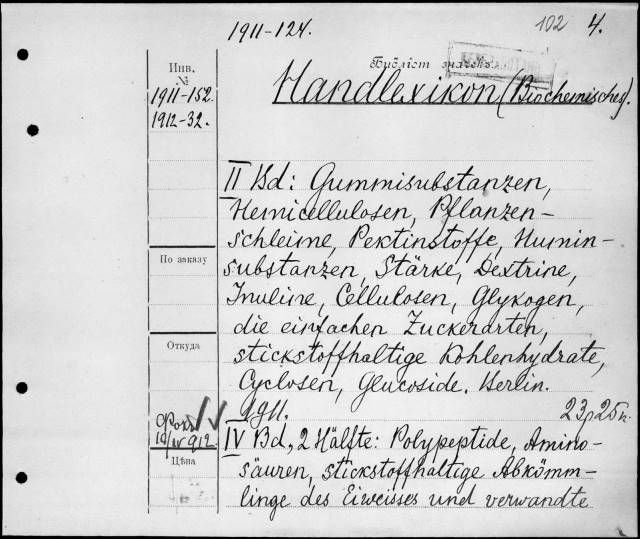 1911-124.
102 4.
Инв.
№
Handlexikon (Biochemisches).
1911-152.
1912-32.
II Bd: Gummisubstanzen,
Hemicellulosen, Pflanzen-
schleime, Pektinstoffe, Humin-
По заказу
substanzen, Stärke, Dextrine,
Inuline, Cellulosen, Glykogen,
die einfachen Zuckerarten,
Откуда
stickstoffhaltige Kohlenhydrate,
Cyclosen, Glucoside. Berlin.
1911. 23р25к.
IV Bd, 2 Hälfte: Polypeptide, Amino-
Цѣна
säuren, stickstoffhaltige Abkömm-
linge des Eiweisses und verwandte